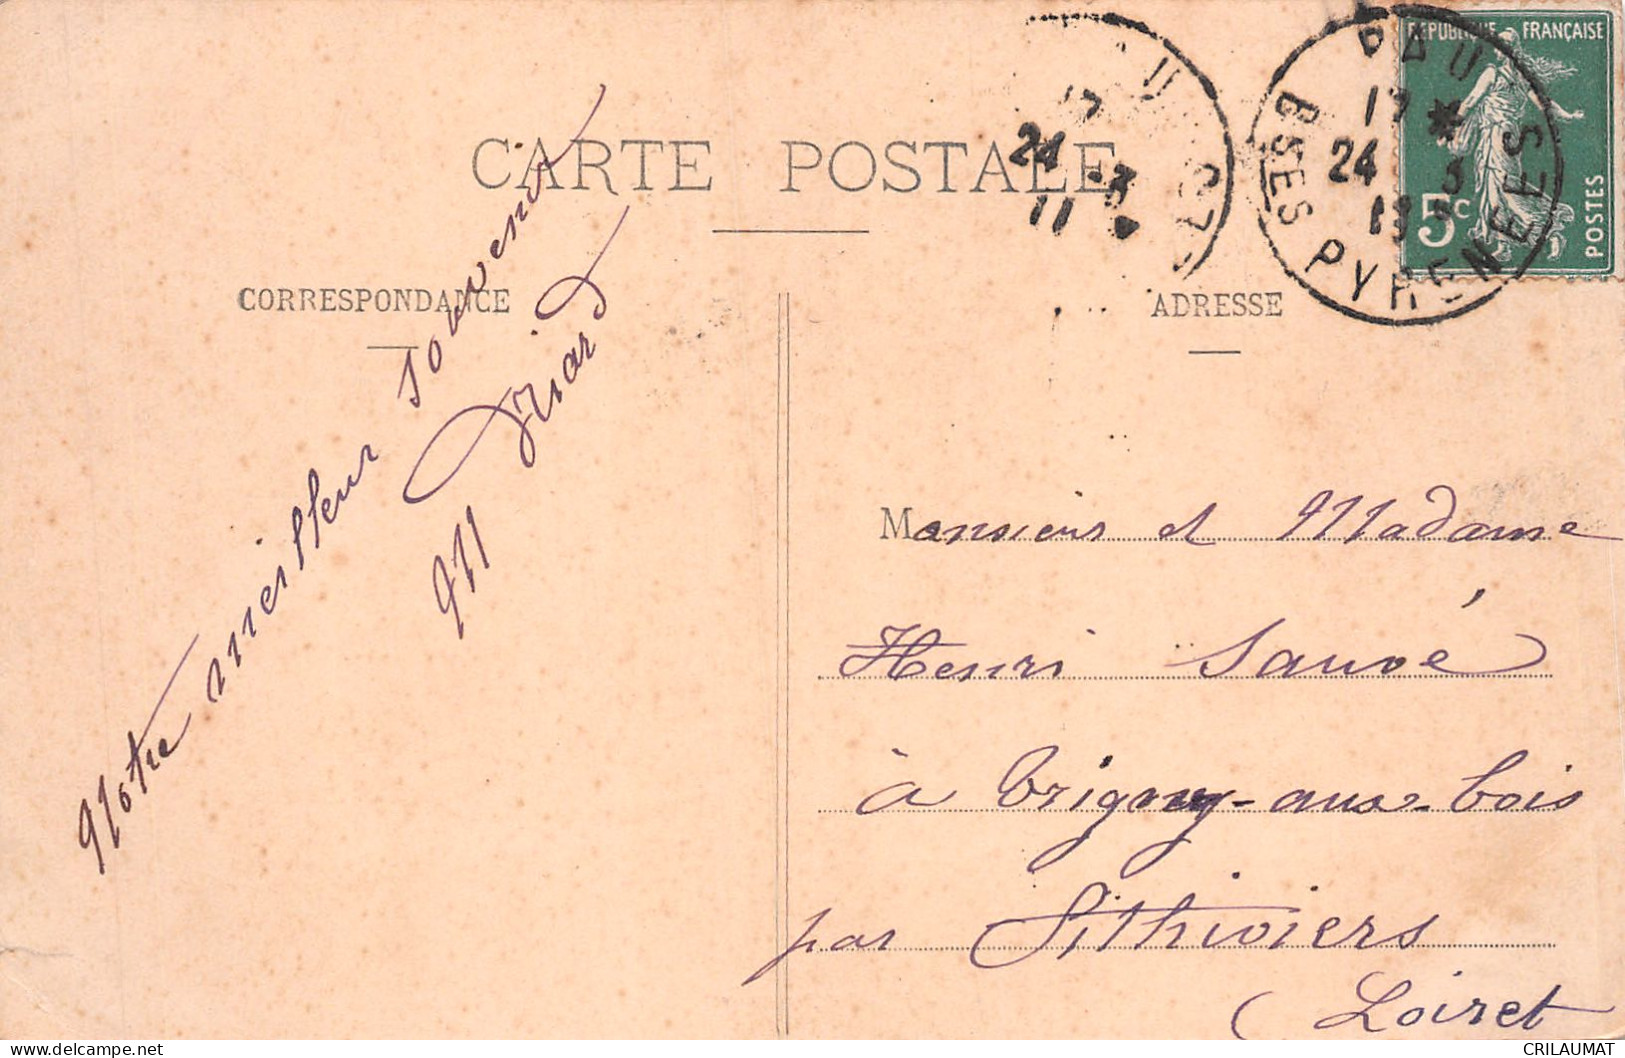 RÉPUBLIQUE FRANÇAISE
5c
POSTES
PAU
17 *
24 3
13
BSES PYRENEES
24 -3
11
CARTE POSTALE
CORRESPONDANCE
ADRESSE
Notre meilleur souvenir
Monsieur et Madame
Henri Sauvé
à Trigny-aux-bois
par Pithiviers
(Loiret
CRILAUMAT